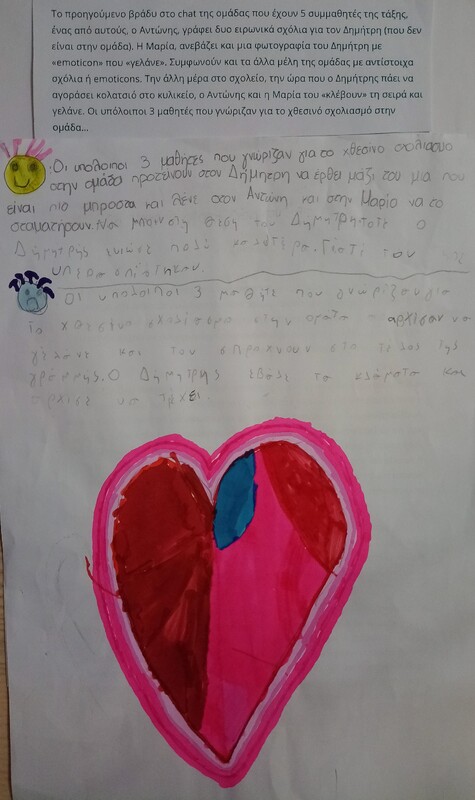 Το προηγούμενο βράδυ στο chat της ομάδας που έχουν 5 συμμαθητές της τάξης,
ένας από αυτούς, ο Αντώνης, γράφει δυο ειρωνικά σχόλια για τον Δημήτρη (που δεν
είναι στην ομάδα). Η Μαρία, ανεβάζει και μια φωτογραφία του Δημήτρη με
«emoticon» που «γελάνε». Συμφωνούν και τα άλλα μέλη της ομάδας με αντίστοιχα
σχόλια ή emoticons. Την άλλη μέρα στο σχολείο, την ώρα που ο Δημήτρης πάει να
αγοράσει κολατσιό στο κυλικείο, ο Αντώνης και η Μαρία του «κλέβουν» τη σειρά και
γελάνε. Οι υπόλοιποι 3 μαθητές που γνώριζαν για το χθεσινό σχολιασμό στην
ομάδα...
Οι υπόλοιποι 3 μαθητες που γνωριζαν για το χθεσινο σχολιασμο
στην ομάδα προτείνουν στον Δημητρη να έρθει μαζί του μια που
είναι πιο μπροστα και λένε στον Αντώνη και στην Μαρία να το
σταματήσουν. Να μπουν στη θέση του Δημητρη. τοτε ο
Δημητρης ενιωσε πολύ καλυτερα. Γιατι τον
υπερασπιστηκαν.
Οι υπολοιποι 3 μαθητε που γνωριζαν για
το χθεσινο σχολιασμο στην ομαδα αρχισαν να
γελανε και τον σπρωχνουν στο τελος της
γραμμης. Ο Δημητρης εβαλε τα κλαματα και
αρχισε να τρεχει.